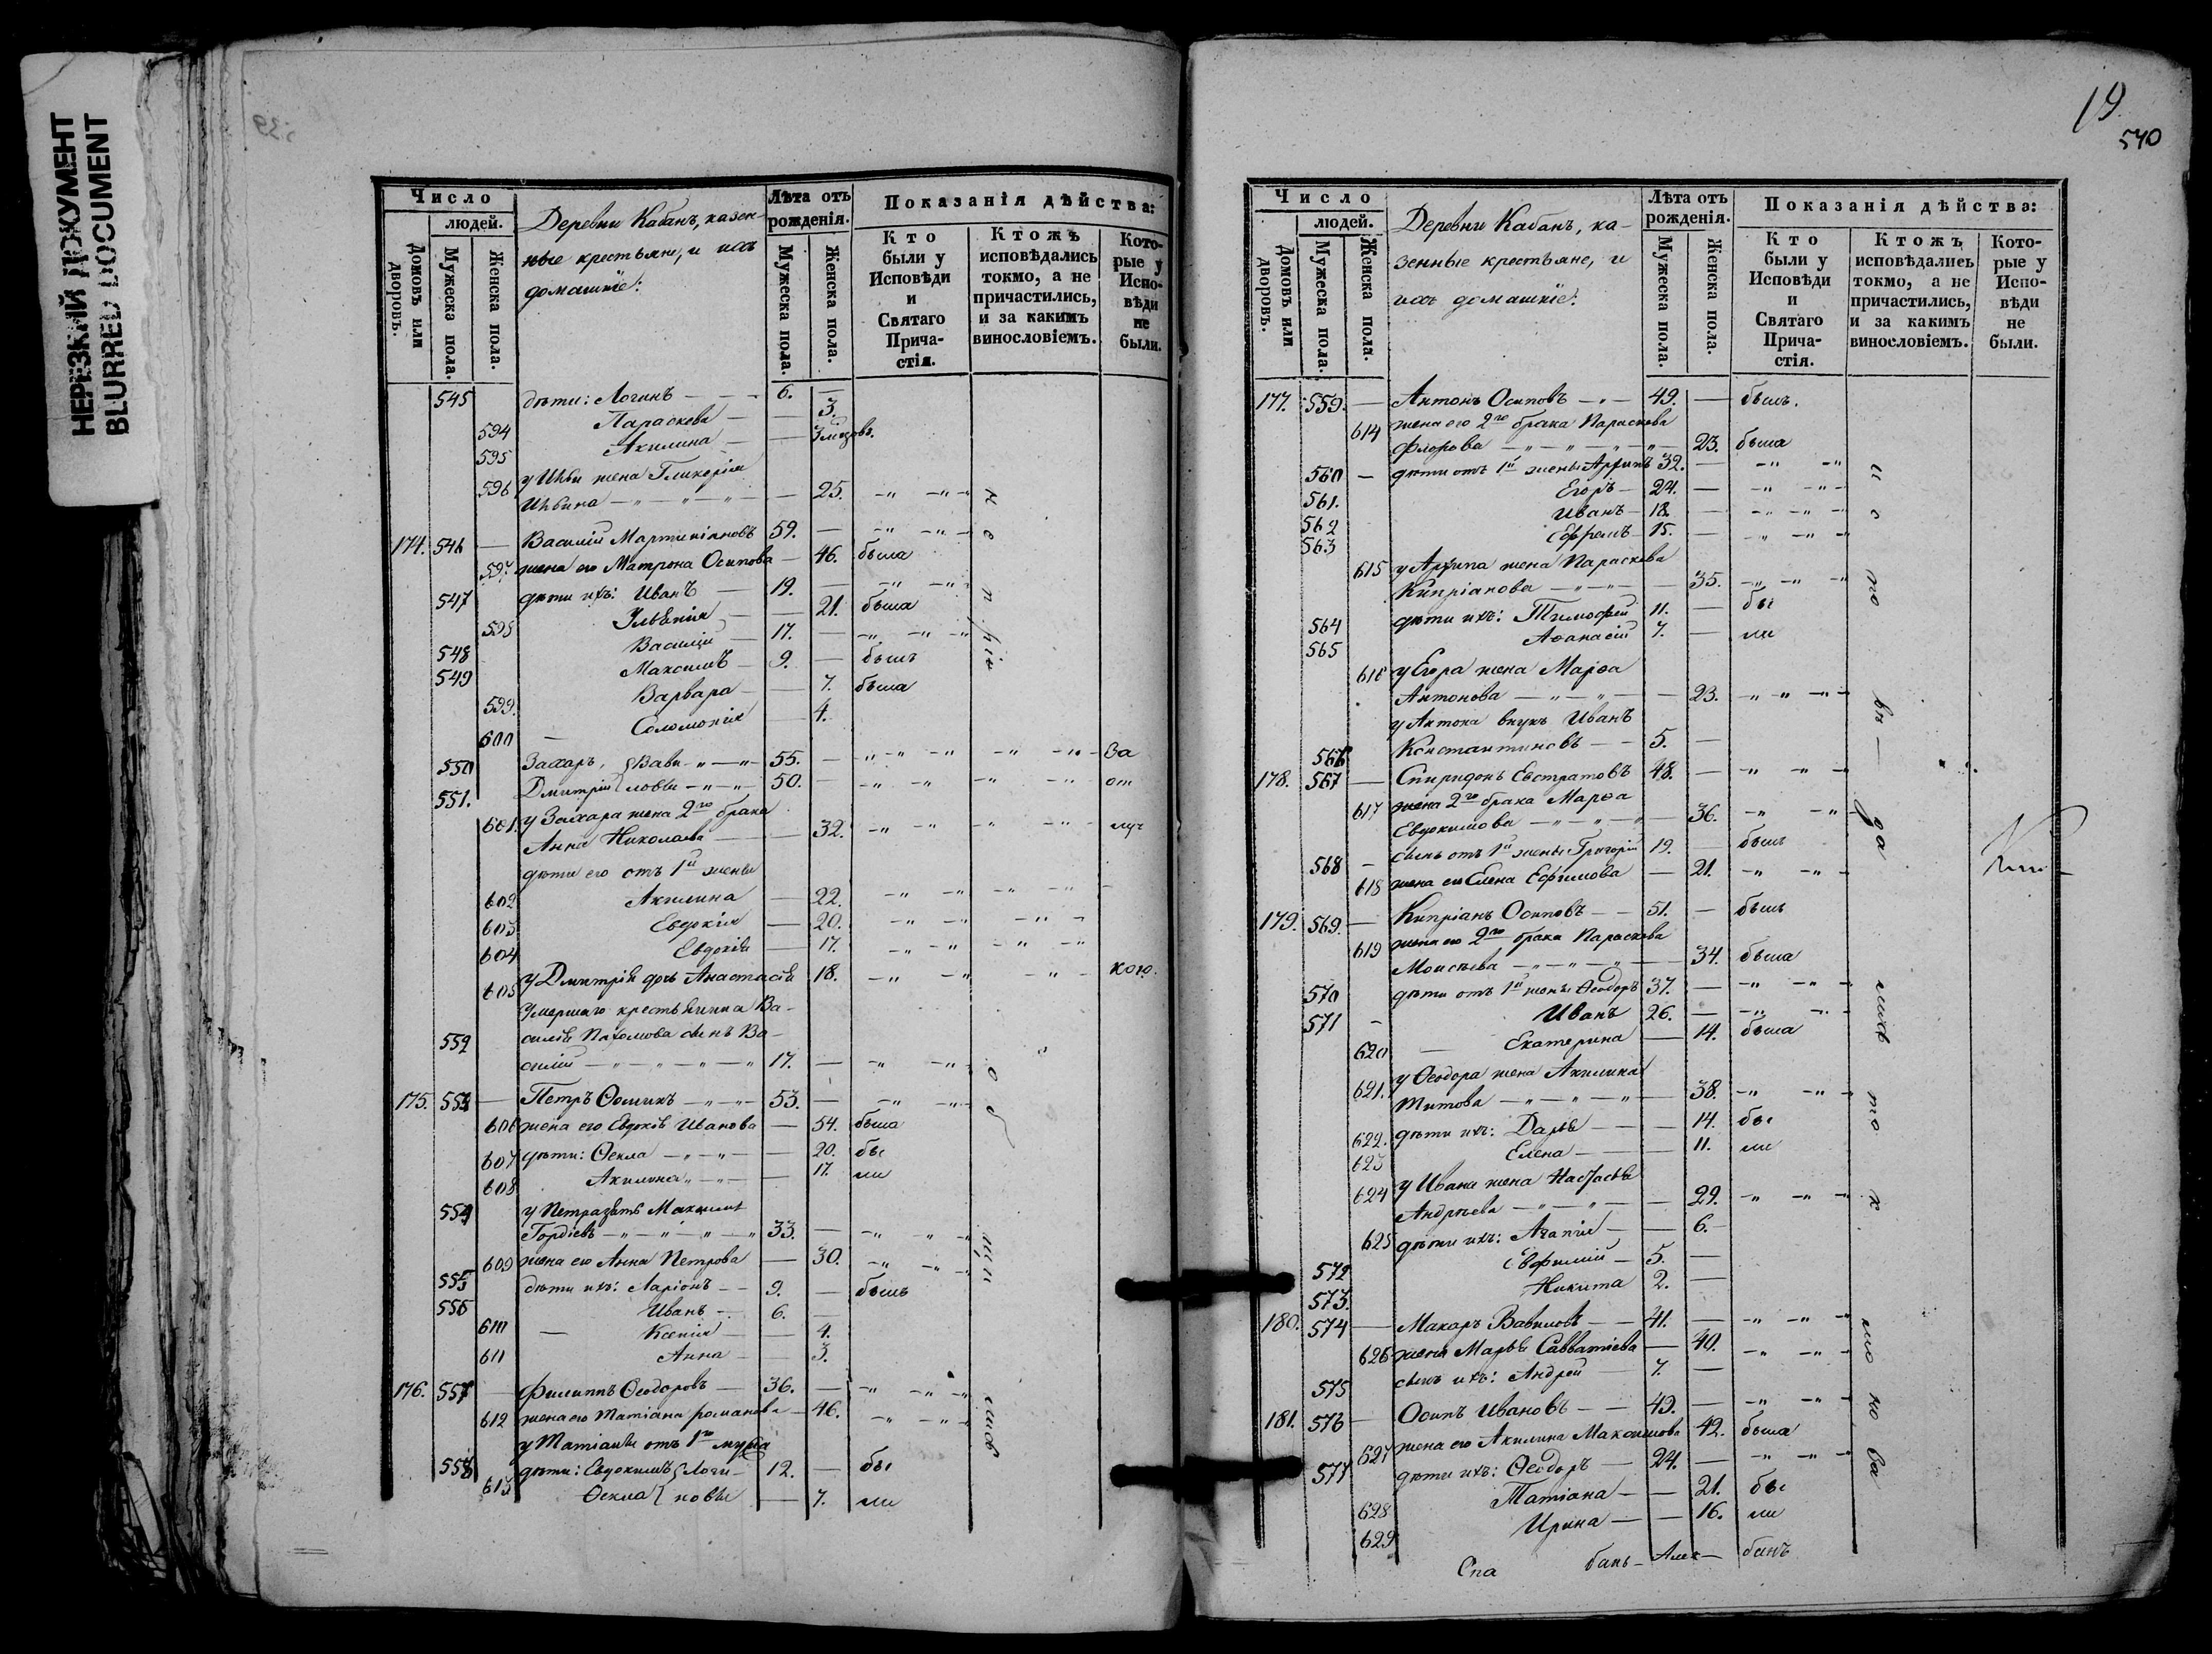 НЕРЕЗКИЙ ДОКУМЕНТ
BLURRED DOCUMENT
Число
людей.
Домовъ или дворовъ.
Мужеска пола.
Женска пола.
Деревни Кабанъ, казен-
ные крестьяне, и ихъ
домашніе:
Лѣта отъ рожденія.
Мужеска пола.
Женска пола.
Показанія дѣйства:
Кто были у Исповѣди и Святаго Прича-стія.
Ктожъ исповѣдались токмо, а не причастились, и за какимъ винословіемъ.
Кото-рые у Испо-вѣди не были.
545 дѣти: Логинъ 6. —
594 Параскева — 3.
595 Акилина —
596 у Ильи жена Гликерія
Ильина — 25.
174. 546 — Василій Мартиніановъ 59. —
597 жена его Матрона Осипова — 46. была
547 дѣти ихъ: Иванъ — 19. —
598 Іуліанія — 21. была
548 Василій 17. —
549 Максимъ — 9. — былъ
599. Варвара — 7. была
600 Соломонія — 4.
550 Захаръ, Вави- 55. — за
551. Дмитрій ловы 50. — от
601. у Захара жена 2го брака
Анна Николаева — 32. луч
дѣти его отъ 1й жены
602 Акилина — 22.
603 Евдокія — 20.
604 Евдокія — 17.
605 у Дмитрія дочь Анастасія 18. кою.
умершаго крестьянина Ва-
силія Пахомова сынъ Ва-
552 силій 17. —
175. 553 — Петръ Фоминъ 53. —
606 жена его Евдокія Иванова — 54. была
607 дѣти: Ѳекла — 20. бы
608 Акилина — 17. ли
554 у Петра зять Максимъ
Гордіевъ 33. —
609 жена его Анна Петрова — 30.
555 дѣти ихъ: Ларіонъ 9. — былъ
556 Иванъ 6. —
610 — Ксенія — 4.
611 Анна — 3.
176. 557 — Филиппъ Ѳеодоровъ — 36. —
612 жена его Татіана Романова — 46.
у Татіаны отъ 1го мужа
558 дѣти: Евдокимъ Логи- 12. — бы
613 Ѳекла новы — 7. ли
19
540
Число
людей.
Домовъ или дворовъ.
Мужеска пола.
Женска пола.
Деревни Кабанъ, ка-
зенные крестьяне, и
ихъ домашніе:
Лѣта отъ рожденія.
Мужеска пола.
Женска пола.
Показанія дѣйства:
Кто были у Исповѣди и Святаго Прича-стія.
Ктожъ исповѣдались токмо, а не причастились, и за какимъ винословіемъ.
Кото-рые у Испо-вѣди не были.
177. 559. — Антонъ Осиповъ 49. — былъ.
614 жена его 2го брака Параскева
Флорова 23. была
560 — дѣти отъ 1й жены Архипъ 32. —
561. Егоръ — 24. —
562 Иванъ — 18. —
563 Ефремъ — 15. —
615 у Архипа жена Параскева
Кипріанова — 35.
564 дѣти ихъ: Тимофей 11. — бы
565 Аѳанасій 7. — ли
616 у Егора жена Марѳа
Антонова — 23.
у Антона внукъ Иванъ
566 Константиновъ — 5. —
178. 567 — Спиридонъ Евстратовъ 48. —
617 жена 2го брака Марѳа
Евдокимова — 36.
568 — сынъ отъ 1й жены Григорій 19. былъ
618 жена его Елена Ефимова — 21.
179. 569. — Кипріанъ Осиповъ — 51. — былъ
619 жена его 2го брака Параскева
Моисѣева — 34. была
570 дѣти отъ 1й жены Ѳеодоръ 37. —
571 — Иванъ 26. —
620 — Екатерина — 14. была
621. у Ѳеодора жена Акилина
Титова — 38.
622. дѣти ихъ: Дарья — 14. бы
623 Елена — 11. ли
624 у Ивана жена Настасья
Андреева — 29.
625 дѣти ихъ: Агапія — 6.
572 Евфимій — 5. —
573. Никита 2. —
180. 574 — Макаръ Вавиловъ — 41. —
626 жена Марья Савватіева — 40.
575 сынъ ихъ: Андрей — 7. —
181. 576 — Осипъ Ивановъ — 49. —
627 жена его Акилина Максимова 42. была
577 дѣти ихъ: Ѳеодоръ — 24. —
628 Татіана — 21. бы
629 Ирина — 16. ли
Спа банъ